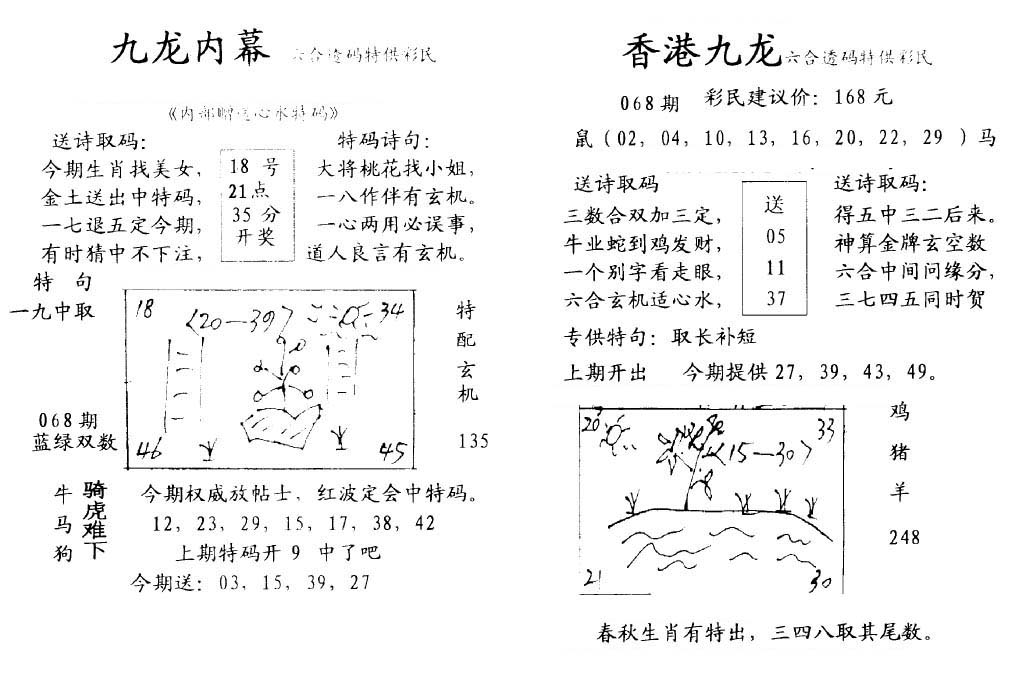 九龙内幕 六合透码特供彩民
《内部赠送心水特码》
送诗取码：
今期生肖找美女，
金土送出中特码，
一七退五定今期，
有时猜中不下注，
18 号
21点
35 分
开奖
特码诗句：
大将桃花找小姐，
一八作伴有玄机。
一心两用必误事，
道人良言有玄机。
特 句
一九中取
068期
蓝绿双数
18
〈20—39〉
34
46
45
特
配
玄
机
135
牛
马
狗
骑
虎
难
下
今期权威放帖士，红波定会中特码。
12，23，29，15，17，38，42
上期特码开 9 中了吧
今期送：03，15，39，27
香港九龙六合透码特供彩民
068期 彩民建议价：168元
鼠（02，04，10，13，16，20，22，29 ）马
送诗取码
三数合双加三定，
牛业蛇到鸡发财，
一个别字看走眼，
六合玄机适心水，
送
05
11
37
送诗取码：
得五中三二后来。
神算金牌玄空数
六合中间问缘分，
三七四五同时贺
专供特句：取长补短
上期开出 今期提供27，39，43，49。
20
33
〈15—30〉
21
30
鸡
猪
羊
248
春秋生肖有特出，三四八取其尾数。